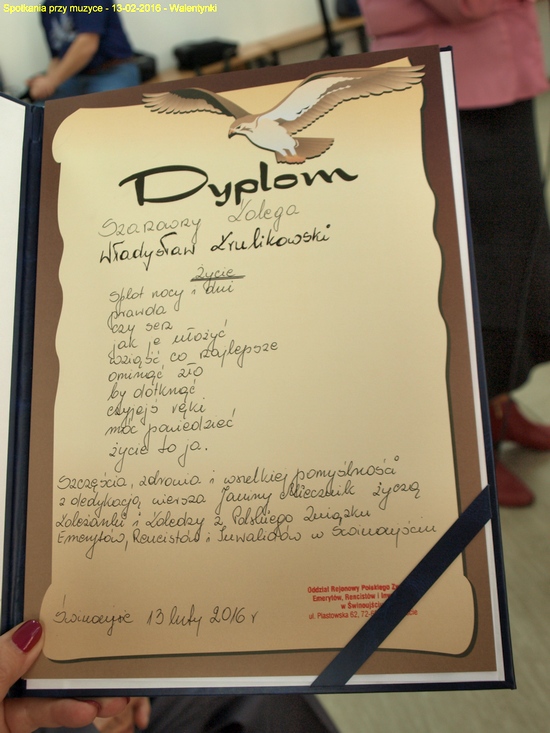 Spotkania przy muzyce - 13-02-2016 - Walentynki
Dyplom
Szanowny Kolega
Władysław Krulikowski
Życie
Splot nocy i dni
prawda
czy sen
jak je ułożyć
wziąść co najlepsze
ominąć zło
by dotknąć
czyjejś ręki
móc powiedzieć
życie to ja.
Szczęścia, zdrowia i wszelkiej pomyślności
z dedykacją wiersza Janiny Miecznik życzą
Koleżanki i Koledzy z Polskiego Związku
Emerytów, Rencistów i Inwalidów w Świnoujściu
Świnoujście 13 luty 2016 r
Oddział Rejonowy Polskiego
Emerytów, Rencistów i
w Świnoujściu
ul. Piastowska 62, 72-